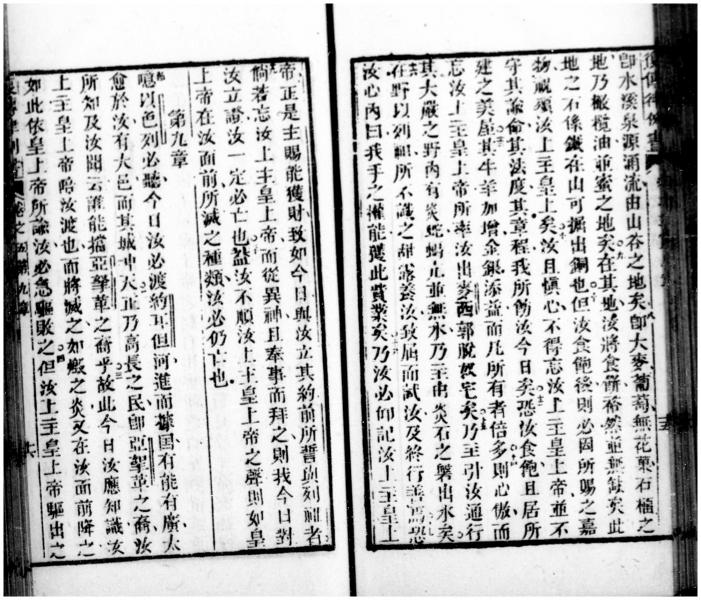 復傳律例書
卽水溪泉源涌流由山谷之地矣卽大麥葡萄無花菓石榴之
地乃橄欖油並蜜之地矣在其地汝將食餅裕然並無缺矣此
地之石係鐵在山可掘出銅也但汝食飽後則必因所賜之嘉
物祝頌汝上主皇上矣汝且愼心不得忘汝上主皇上帝並不
守其諭命其法度其章程我所飭汝今日矣恐汝食飽且居所
建之美屋其牛羊加增金銀添益而凡所有者倍多則心傲而
忘汝上主皇上帝所率汝出麥西郭脫奴宅矣乃主引汝通行
其大嚴之野內有炎蛇蝎並無水乃主由炎石之磐出水矣
在野以列祖所不識之甜露養汝致屈而試汝及終行善焉恐
汝心內曰我手之權能獲此貲業矣乃汝必仰記汝上主皇上
帝正是主賜能獲財致如今日與汝立其約前所誓與列祖者
倘若忘汝上主皇上帝而從異神且奉事而拜之則我今日對
汝立證汝一定必亡也蓋汝不順汝上主皇上帝之聲則如皇
上帝在汝面前所滅之種類汝必仍亡也
第九章
噫以色列必聽今日汝必渡約耳但河進而據国有能有廣太
愈於汝有大邑而其城中天正乃高長之民卽亞拏革之裔汝
所知及汝聞云誰能擋亞拏革之裔乎故此今日汝應知識汝
上主皇上帝陪汝渡也而將滅之如燬之炎又在汝面前降之
如此依皇上帝所諭汝必急驅敗之但汝上主皇上帝驅出之
卷之五第九章
六